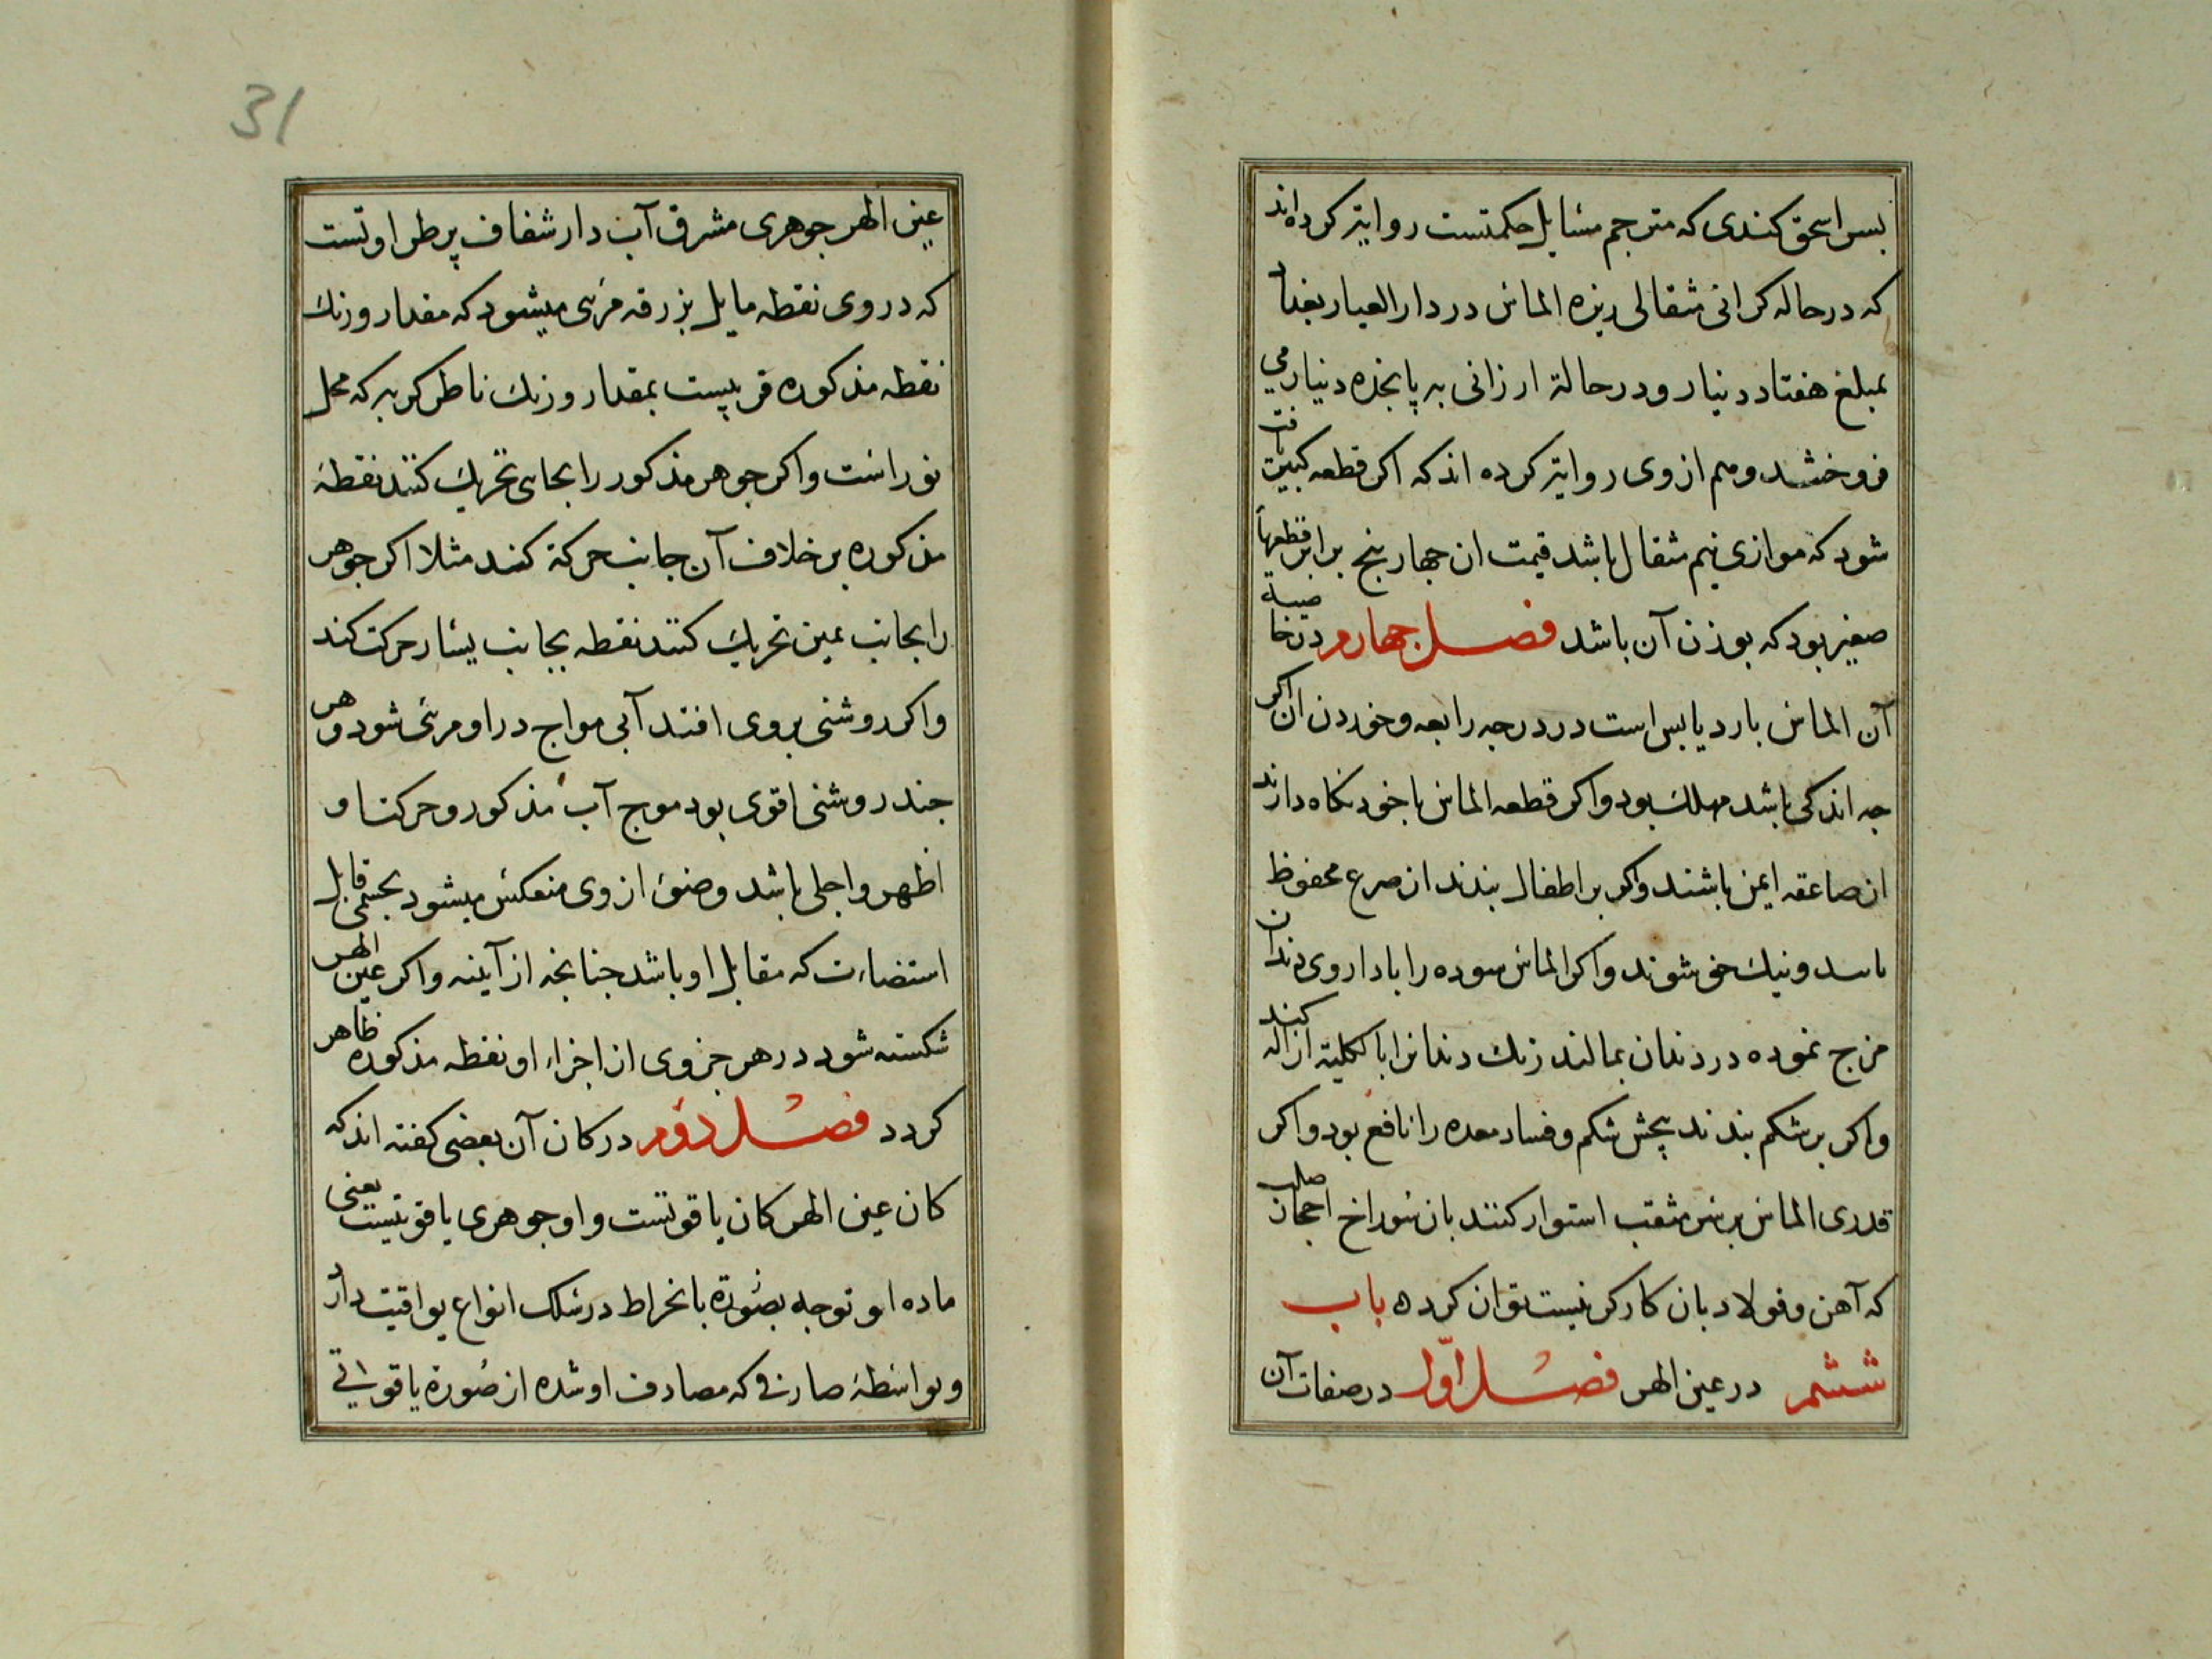 بسر اسحق کندی که مترجم مسایل حکمتست روایتر کرده‌اند
که در حاله کرانی مثقالی ریزه الماس در دار العیار بغداد
بمبلغ هفتاد دینار و در حالة ارزانی به پانجزه دینار می
فروختند و هم از وی روایتر کرده اند که اکر قطعه کبیر یافت
شود که موازی نیم مثقال باشد قیمت ان جهار بنج برابر قطعهاء
صغیر بود که بوزن آن باشد فصل جهارم در خاصیة
آن الماس بارد یابس است در درجه رابعه و خوردن ان اکر
جه اندکی باشد مهلک بود و اکر قطعه الماس با خود نکاه دارند
از صاعقه ایمن باشند و اکر بر اطفال بندند از صرع محفوظ
باسد و نیک خو شوند و اکر الماس سوده را با داروی دندان
مزج نموده در دندان بمالند زنک دندانرا بالکلیة ازاله کنند
و اکر بر شکم بندند پیچش شکم و فساد معده را نافع بود و اکر
قدری الماس بر سر مثقب استوار کنند بان سوراخ احجار صلب
که آهن و فولاد بان کارکر نیست توان کرد ه باب
ششم در عین الهر فصل اوّل در صفات آن
31
عین الهر جوهری مشرق آب دار شفاف پر طراوتست
که در وی نقطه مایل بزرقه مرئی میشود که مقدار و زنک
نقطه مذکوره قریبست بمقدار و زنک ناظر کربه که محل
نور است و اکر جوهر مذکور را بجای تحریک کنند نقطهٔ
مذکوره بر خلاف آن جانب حرکة کند مثلا اکر جوهر
را بجانب یمین تحریک کنند نقطه بجانب یسار حرکت کند
و اکر روشنی بر وی افتد آبی مواج در او مرئی شود و هر
جند روشنی اقوی بود موج آب مذکور و حرکت او
اظهر و اجلی باشد و ضوئ از وی منعکس میشود بجسمی قابل
استضاءت که مقابل او باشد جنانجه از آینه و اکر عین الهر
شکسته شود در هر جزوی از اجزاء او نقطه مذکوره ظاهر
کردد فصل دوّم در کان آن بعضی کفته اند که
کان عین الهر کان یاقوتست و او جوهری یاقوتیست یعنی
ماده او توجه بصورة بانخراط در سلک انواع یواقیت دارد
و بواسطهٔ صارفی که مصادف او شده از صورة یاقوتی